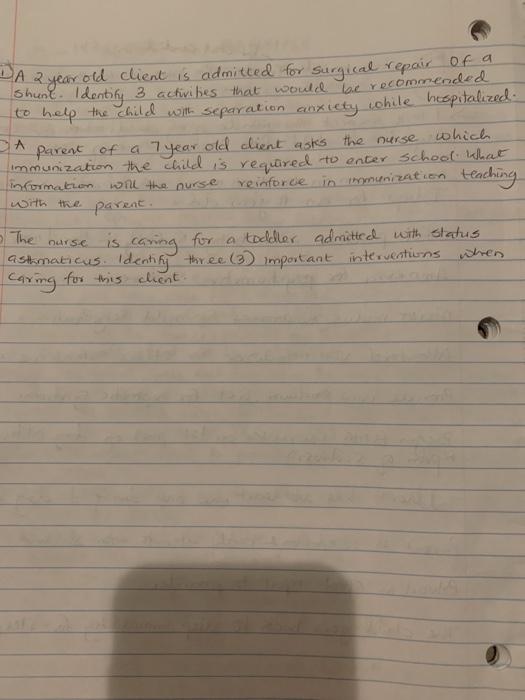 1) A 2 year old client is admitted for surgical repair of a
shunt. Identify 3 activities that would be recommended
to help the child with separation anxiety while hospitalized.
A parent of a 7 year old client asks the nurse which
immunization the child is required to enter school. What
information will the nurse reinforce in immunization teaching
with the parent.
The nurse is caring for a toddler admitted with status
asthmaticus. Identify three (3) important interventions when
caring for this client.